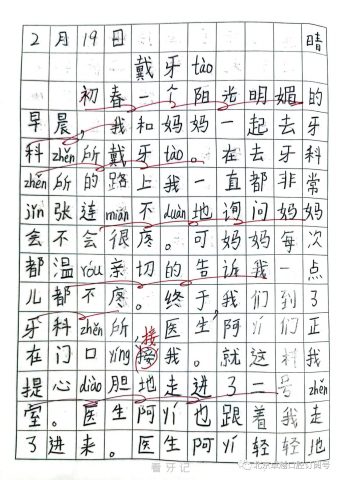 2月19日 晴
戴牙tào
初春一个阳光明媚的
早晨，我和妈妈一起去牙
科zhěn所戴牙tào。在去牙科
zhěn所的路上我一直都非常
jǐn张连mián不duàn地询问妈妈
会不会很疼。可妈妈每次
都温róu亲切的告诉我一点
儿都不疼。终于我们到了
牙科zhěn所，医生阿yí们正
接
在门口yíng接我。就这样我
提心diào胆地走进了二号zhěn
室。医生阿yí也跟着我走
了进来。医生阿yí轻轻地
看牙记
北京卓越口腔订阅号